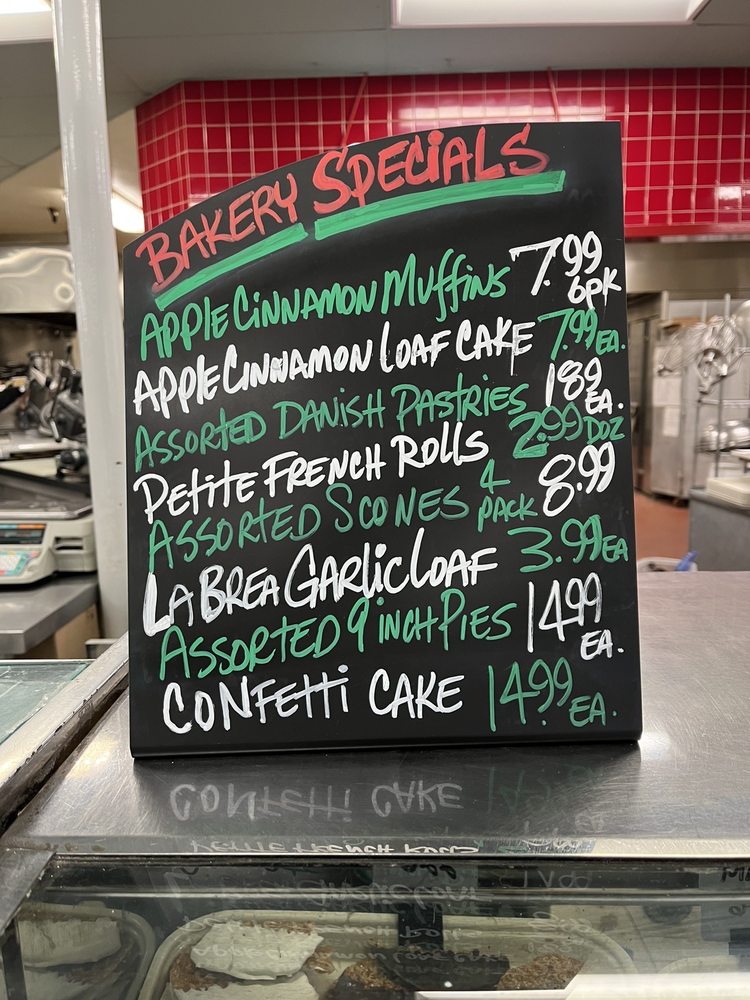 BAKERY SPECIALS
APPLE CINNAMON MUFFINS 7.99 6PK
APPLE CINNAMON LOAF CAKE 7.99 EA.
ASSORTED DANISH PASTRIES 1.89 EA.
PETITE FRENCH ROLLS 2.99 DOZ
ASSORTED SCONES 4 PACK 8.99
LA BREA GARLIC LOAF 3.99 EA
ASSORTED 9 INCH PIES 14.99 EA.
CONFETTI CAKE 14.99 EA.